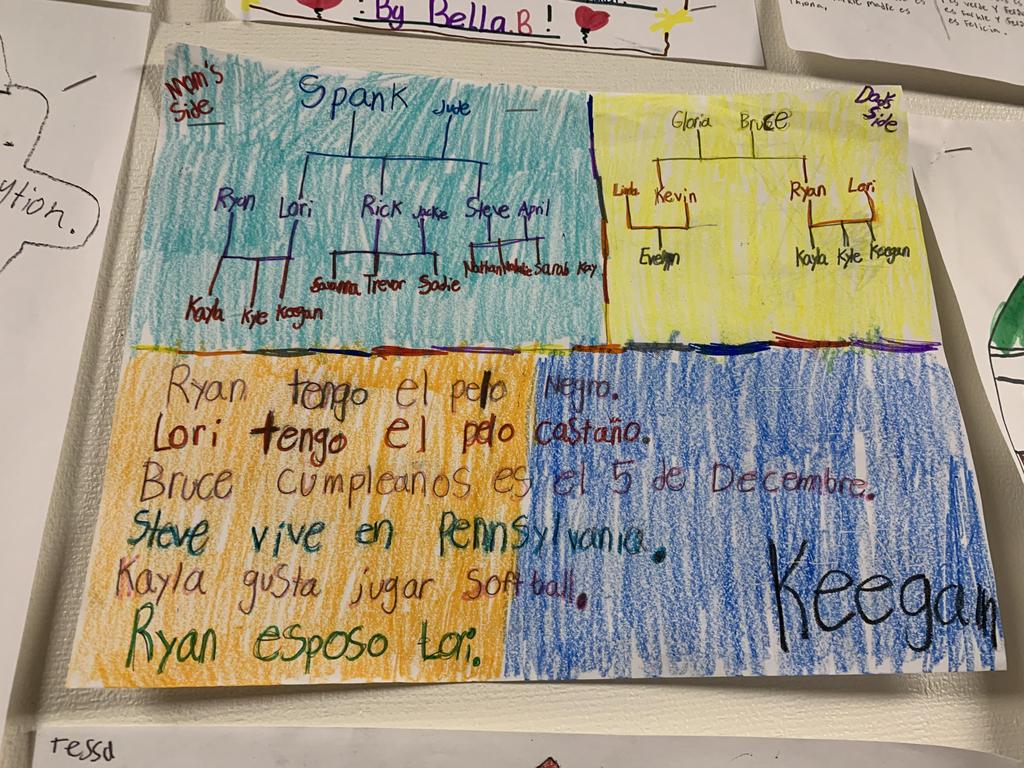 By Bella.B!
ytion.
Mom's
Side
Spank Jude
Ryan Lori Rick Jacke Steve April
Savanna Trevor Sadie Nathan Natalie Sarah Kay
Kayla Kyle Keegan
Dad's
Side
Gloria Bruce
Linda Kevin Ryan Lori
Evelyn Kayla Kyle Keegan
Ryan tengo el pelo Negro.
Lori tengo el pelo castaño.
Bruce cumpleaños es el 5 de Decembre.
Steve vive en Pennsylvania.
Kayla gusta jugar Softball.
Ryan esposo Lori.
Keegan
es Felicia.
ressa